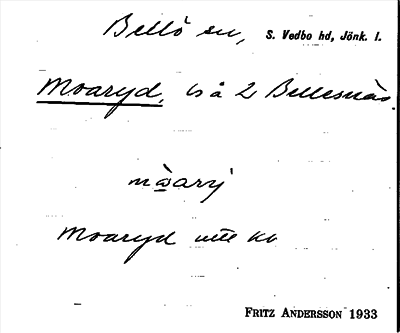 Bellö sn, S. Vedbo hd, Jönk. l.
Moaryd, ls å 2 Bellesnäs.
mꜵ̀arj
Moaryd utt kv
FRITZ ANDERSSON 1933